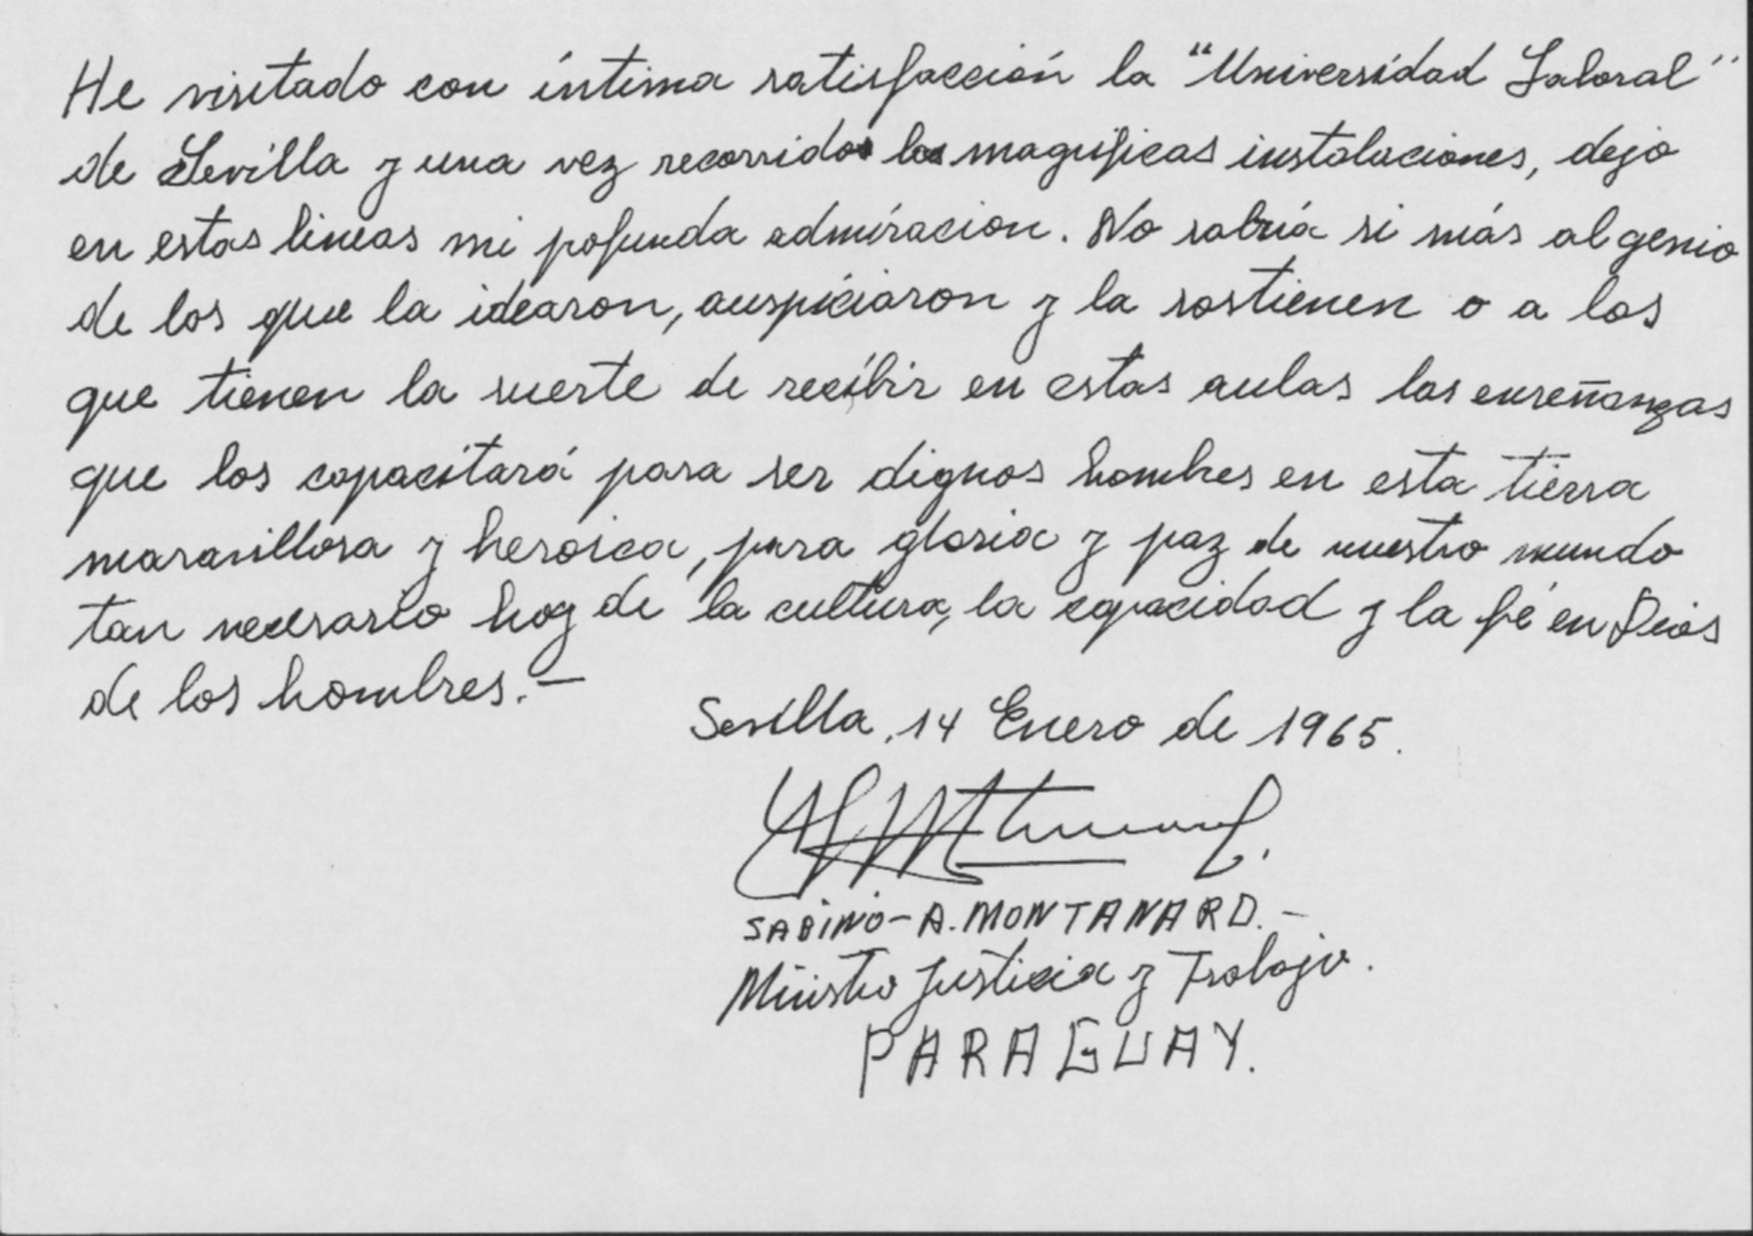 He visitado con íntima satisfacción la "Universidad Laboral"
de Sevilla y una vez recorridos las magnificas instalaciones, dejo
en estas lineas mi pofunda admiracion. No sabría si más al genio
de los que la idearon, auspiciaron y la sostienen o a los
que tienen la suerte de recibir en estas aulas las enseñanzas
que los capacitará para ser dignos hombres en esta tierra
maravillosa y heroica, para gloria y paz de nuestro mundo
tan necesario hoy de la cultura, la capacidad y la fé en Dios
de los hombres.-
Sevilla, 14 Enero de 1965.
SABINO-A. MONTANARO.-
Ministro Justicia y Trabajo.
PARAGUAY.